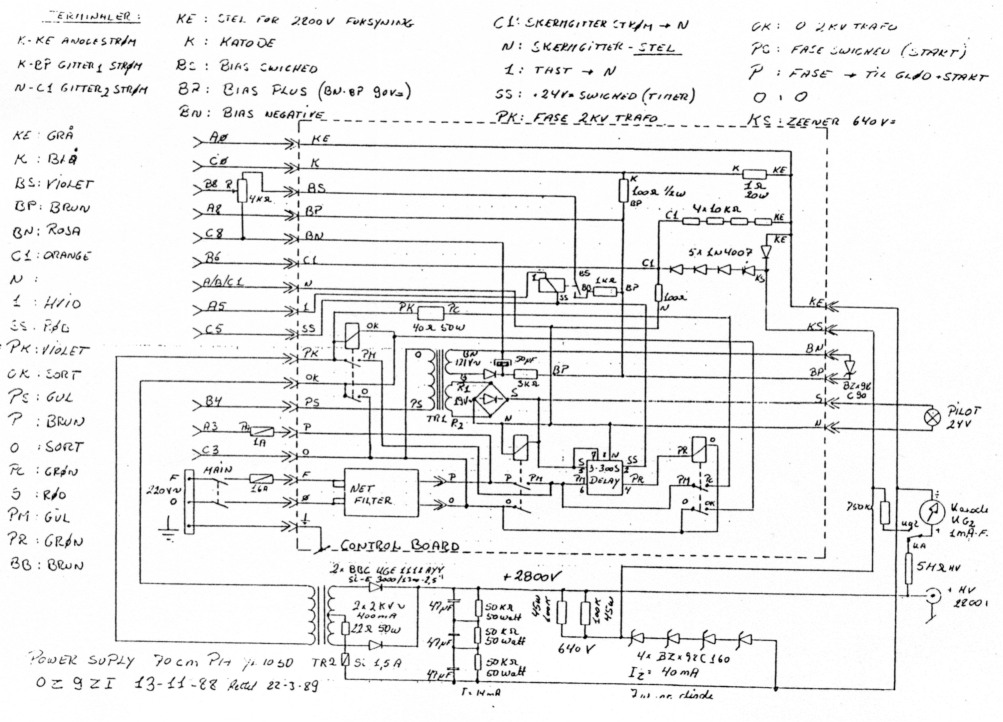 TERMINALER :
K-KE ANODESTRØM
K-BP GITTER1 STRØM
N-C1 GITTER2 STRØM
KE : STEL FOR 2800V FORSYNING
K : KATODE
BS : BIAS SWICHED
BP : BIAS PLUS (BN-BP 90V=)
BN : BIAS NEGATIVE
C1 : SKERMGITTER STRØM → N
N : SKERMGITTER - STEL
1 : TAST → N
SS : +24V= SWICHED (TIMER)
PK : FASE 2KV TRAFO
OK : O 2KV TRAFO
PC : FASE SWICHED (START)
P : FASE → TIL GLØD + START
O : O
KS : ZEENER 640V=
KE : GRÅ
K : BLÅ
BS : VIOLET
BP : BRUN
BN : ROSA
C1 : ORANGE
N :
1 : HVID
SS : RØD
PK : VIOLET
OK : SORT
PS : GUL
P : BRUN
O : SORT
PC : GRØN
S : RØD
PM : GUL
PR : GRØN
BB : BRUN
AØ KE
CØ K
B8 BS
4KΩ
A8 BP
C8 BN
B6 C1
A/B/C1 N
A5 1
C5 SS
PK
OK
B4 PS
A3 1A P
C3 O
F MAIN 16A F
220V~
Ø
K 1Ω 20W KE
K 100Ω ½W BP
C1 4×10KΩ KE
KE
5×1N4007
C1 KS
100Ω N
1 SS
BS
BB 1KΩ BP
PK PC
40Ω 50W
OK
PM
O O
PS TR1
BN
50µF
3KΩ BP
S
N
P PM
O
S-300S
DELAY
SS
PR
PM
PR O
PM PC
O OK
NET
FILTER
P
O
CONTROL BOARD
KE
KS
BN
BP
S
N
BZX98
C90
PILOT
24V
UG2
1mA-F.
UG2
UA
5MΩ HV
+ HV
2×2KV~
400mA
22Ω 50W
TR2 Si 1,5A
+2800V
47µF 50KΩ
50Watt
47µF 50KΩ
50Watt
47µF 50KΩ
50Watt
I=14mA
100K
45W
100K
45W
640V
4× BZX92C160
IZ = 40mA
POWER SUPLY 70cm PA
OZ9ZI 13-11-88 Rettet 22-3-89